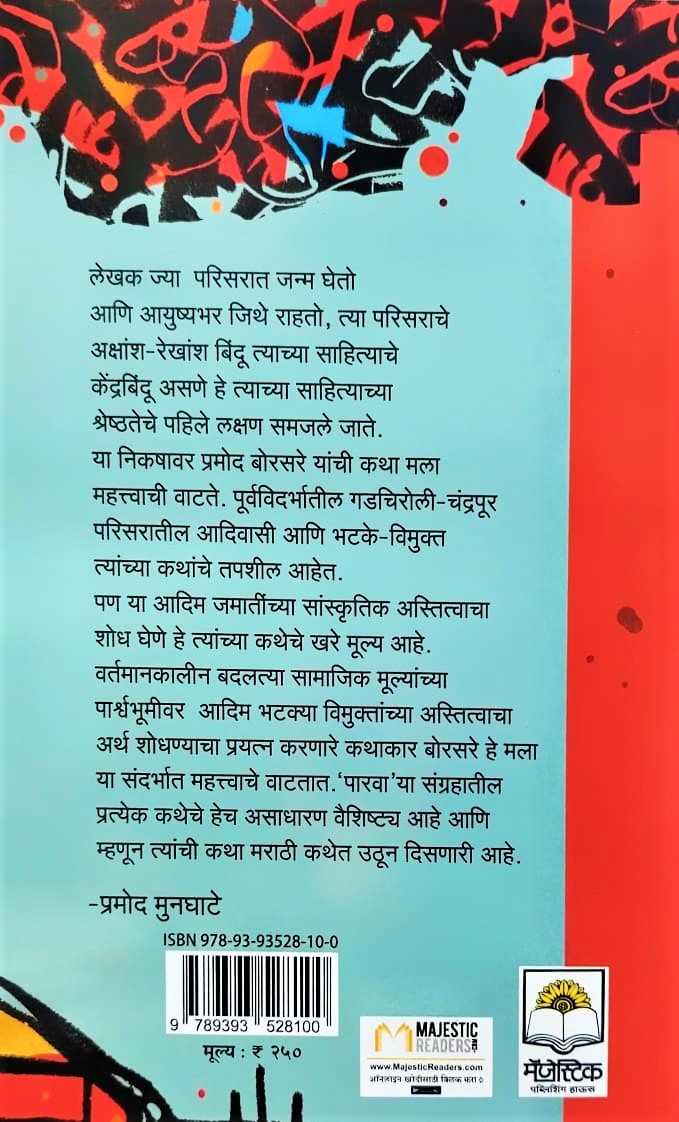 लेखक ज्या परिसरात जन्म घेतो
आणि आयुष्यभर जिथे राहतो, त्या परिसराचे
अक्षांश-रेखांश बिंदू त्याच्या साहित्याचे
केंद्रबिंदू असणे हे त्याच्या साहित्याच्या
श्रेष्ठतेचे पहिले लक्षण समजले जाते.
या निकषावर प्रमोद बोरसरे यांची कथा मला
महत्त्वाची वाटते. पूर्वविदर्भातील गडचिरोली-चंद्रपूर
परिसरातील आदिवासी आणि भटके-विमुक्त
त्यांच्या कथांचे तपशील आहेत.
पण या आदिम जमातींच्या सांस्कृतिक अस्तित्वाचा
शोध घेणे हे त्यांच्या कथेचे खरे मूल्य आहे.
वर्तमानकालीन बदलत्या सामाजिक मूल्यांच्या
पार्श्वभूमीवर आदिम भटक्या विमुक्तांच्या अस्तित्वाचा
अर्थ शोधण्याचा प्रयत्न करणारे कथाकार बोरसरे हे मला
या संदर्भात महत्त्वाचे वाटतात.'पारवा'या संग्रहातील
प्रत्येक कथेचे हेच असाधारण वैशिष्ट्य आहे आणि
म्हणून त्यांची कथा मराठी कथेत उठून दिसणारी आहे.
-प्रमोद मुनघाटे
ISBN 978-93-93528-10-0
9 789393 528100
मूल्य : ₹ २५०
MAJESTIC
READERS
www.MajesticReaders.com
ऑनलाइन खरेदीसाठी क्लिक करा
मॅजेस्टिक
पब्लिशिंग हाऊस